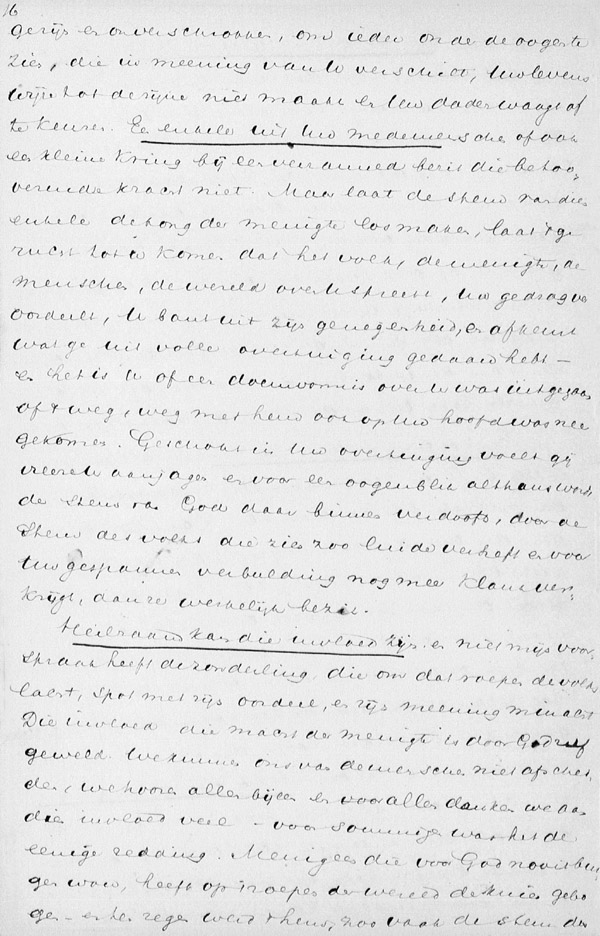 16
gerijs en onverschrokken, om ieder onder de oogen te
zien, die in meening van U verschilt, Uw levens
wijze tot de zijne niet maakt en Uw daden waagt af
te keuren. Een enkele uit Uw medemenschen of ook
een kleine kring bij een vereenigd bezit die betoo-
verende kracht niet. Maar laat de stem van dien
enkele de tong der menigte los maken, laat 't ge
rucht tot U komen dat het volk, de menigte, de
menschen, de wereld over U spreekt, Uw gedrag ver
oordeelt, U bant uit zijn genegenheid, en afkeurt
wat ge uit volle overtuiging gedaan hebt –
en het is U of een doemvonnis over U was uitgegaan
of 't weg, weg met hem ook op Uw hoofd was nee
gekomen. Geschokt in Uw overtuiging voelt gij
vreeze U aanjagen en voor een oogenblik althans wordt
de stem van God daar binnen verdoofd, door de
stem des volks die zich zoo luide verheft en voor
Uw gespannen verbeelding nog meer klank ver-
krijgt, dan ze werkelijk bezit.
Heilzaam kan die invloed zijn. en niet mijn voor-
spraak heeft de zonderling, die om dat roepen des volks
lacht, spot met zijn oordeel, en zijn meening minacht
Die invloed die macht der menigte is door God zelf
gewild. We kunnen ons van de menschen niet afschei
den, we hooren allen bijeen en voor alles danken we aan
dien invloed veel – voor sommigen was het de
eenige redding. Menigeen die voor God nooit bui
gen wou, heeft op 't roepen der wereld de knieën gebo
gen – en ten zegen werd 't hem, zoo vaak de stem des